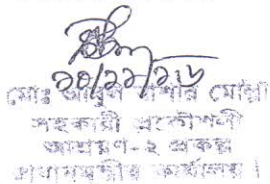 ২০/১১/১৬
মোঃ আবুল বাশার মোল্লা
সহকারী প্রকৌশলী
আশ্রয়ণ-২ প্রকল্প
প্রধানমন্ত্রীর কার্যালয়।